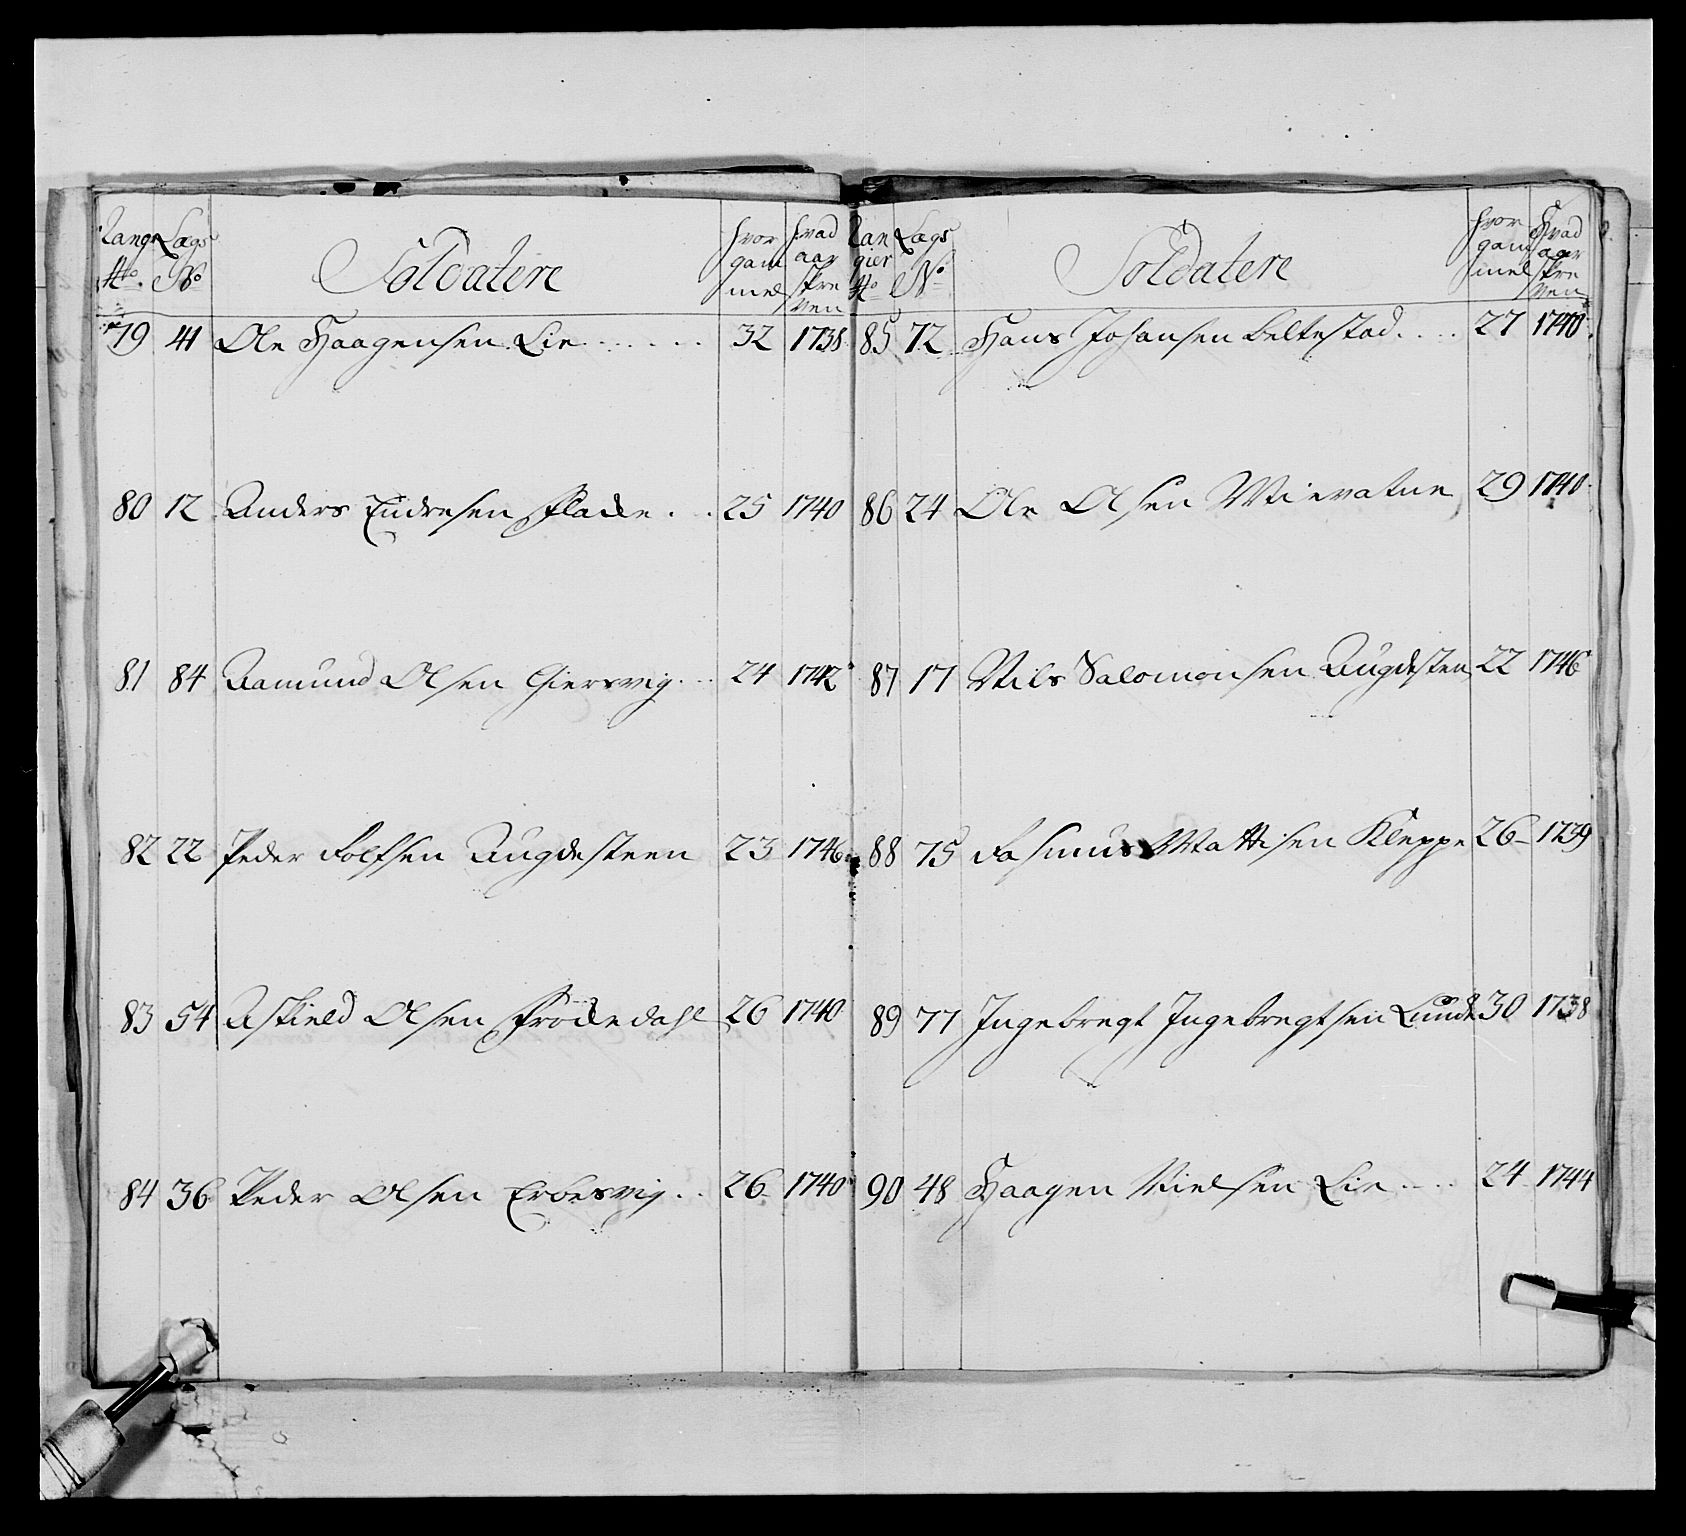 Rang Lægs
No. No
Soldatere
hvor gam mel
hvad aar skre ven
79 41 Ole Haagensen Lie 32 1738
80 12 Anders Endresen Flade 25 1740
81 84 Aamund Olsen Giersvig 24 1742
82 22 Peder Rolfsen Augdesteen 23 1746
83 54 Askield Olsen Frödedahl 26 1740
84 36 Peder Olsen Erbesvig 26 1740
Ran gier No
Lægs No
Soldatere
hvor gam mel
Hvad aar skre ven
85 72 Hans Johansen Beltestad 27 1740
86 24 Ole Olsen Mievatne 29 1740
87 17 Nils Salomonsen Augdesten 22 1746
88 75 Rasmus Mattisen Kleppe 26 1739
89 77 Ingebregt Ingebregtsen Lunde 30 1738
90 48 Haagen Nielsen Lie 24 1744